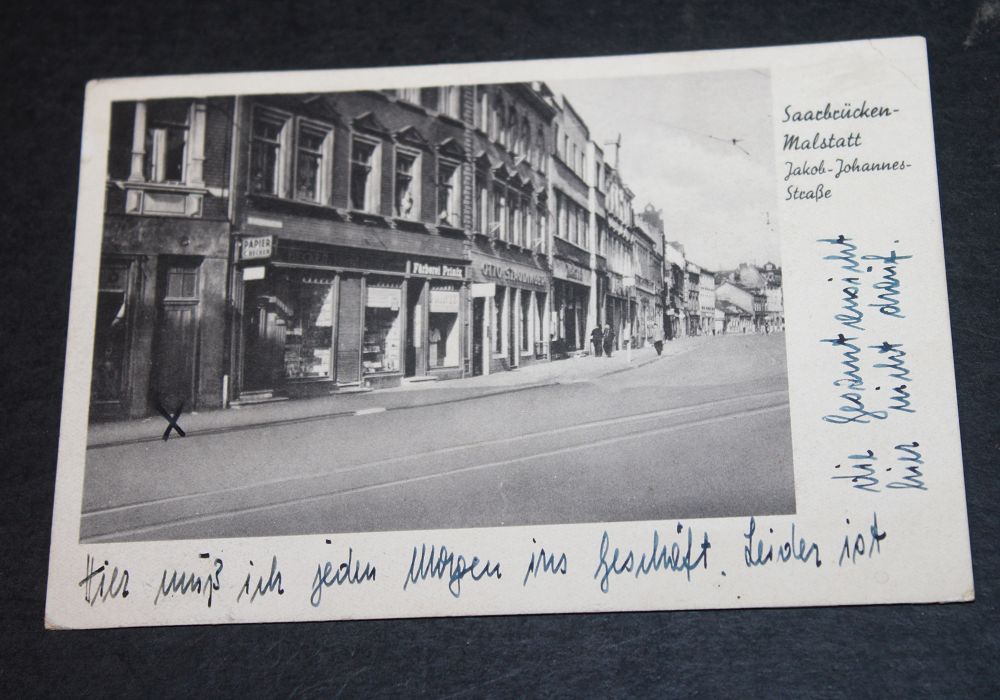 Saarbrücken-
Malstatt
Jakob-Johannes-
Straße
PAPIER
Färberei Printz
OTTO
Hier muß ich jeden Morgen ins Geschäft. Leider ist
die Gesamtansicht
hier nicht drauf.